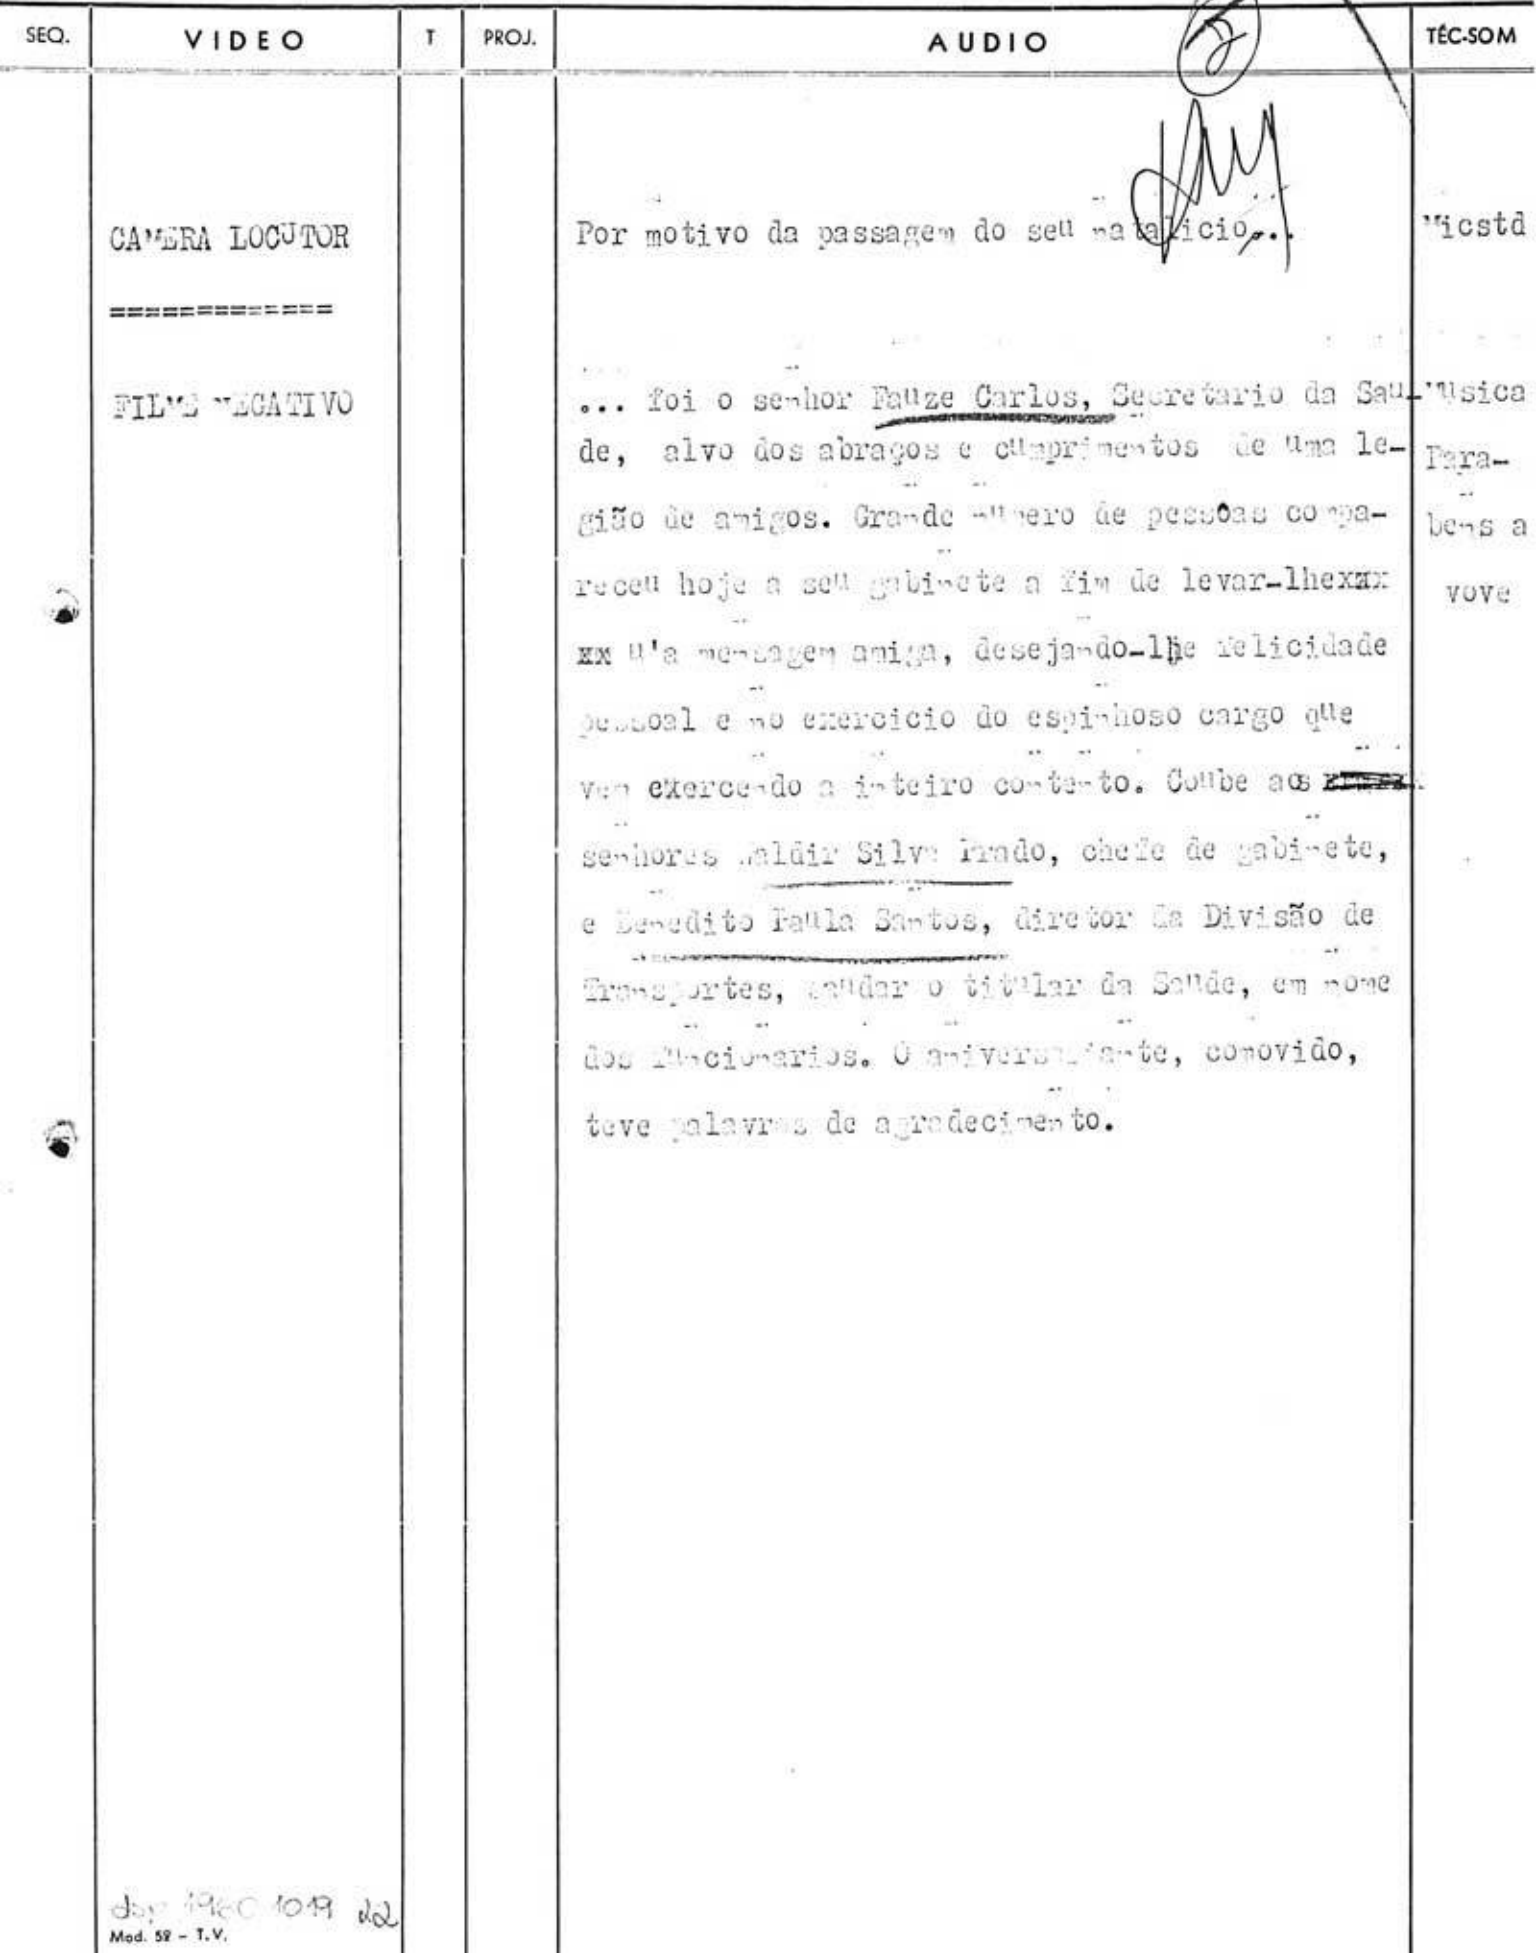 SEQ. VIDEO T PROJ. AUDIO TÉC-SOM
5
CAMERA LOCUTOR Por motivo da passagem do seu natalicio... Micstd
=============
FILME NEGATIVO ... foi o senhor Fauze Carlos, Secretario da Sau- Musica
de, alvo dos abraços e cumprimentos de uma le- Para-
gião de amigos. Grande numero de pessôas compa- bens a
receu hoje a seu gabinete a fim de levar-lhexxx vove
xx u'a mensagem amiga, desejando-lhe felicidade
pessoal e no exercicio do espinhoso cargo que
vem exercendo a inteiro contento. Coube aos
senhores Waldir Silva Prado, chefe de gabinete,
e Benedito Paula Santos, diretor da Divisão de
Transportes, saudar o titular da Saude, em nome
dos funcionarios. O aniversariante, comovido,
teve palavras de agradecimento.
1960 1019 22
Mod. 52 - T.V.